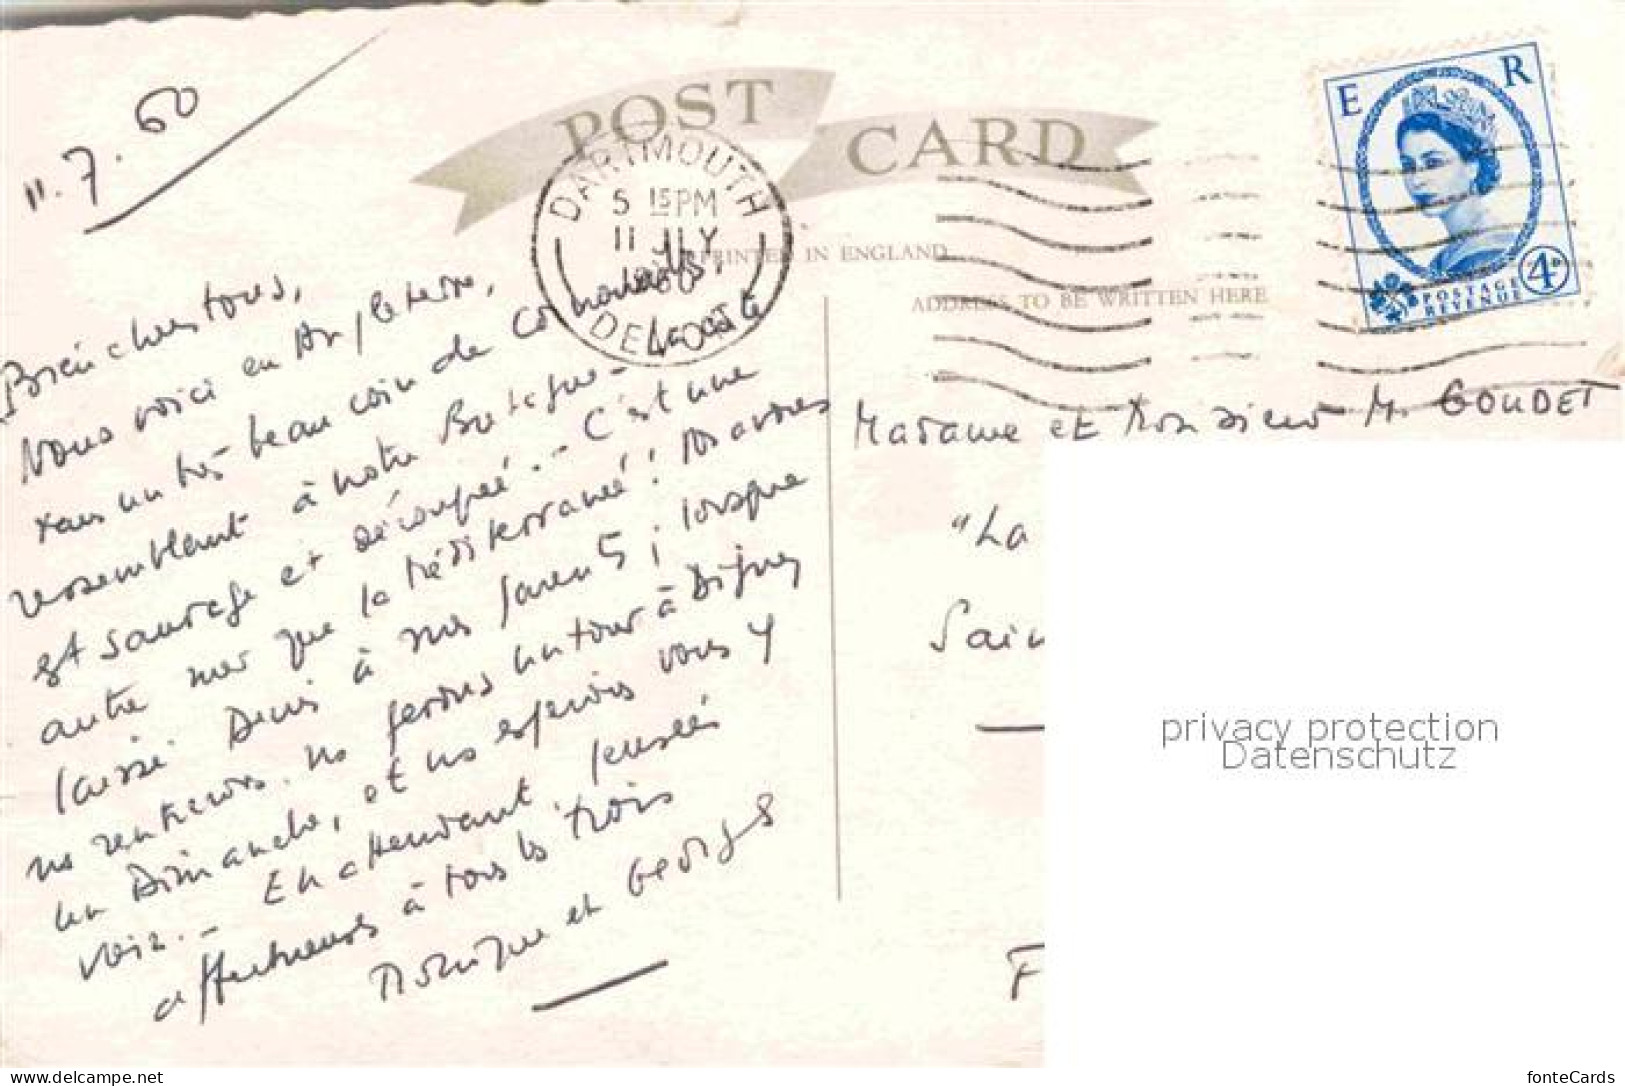 11.7.60
POST CARD
DARTMOUTH
5 15 PM
11 JLY
1960
DEVON
PRINTED IN ENGLAND
ADDRESS TO BE WRITTEN HERE
E R
POSTAGE
REVENUE
4D
Bien chers tous,
Nous voici en Angleterre,
dans un très beau coin de
ressemblant à notre Bretagne - La côte
est sauvage et découpée. - C'est une
autre mer que la Méditerranée! Ns avons
laissé Denis à mes parents; lorsque
ns rentrerons ns ferons un tour à Digny
un Dimanche, et ns espérons vous y
voir. - En attendant, pensées
affectueuses à tous les trois
Monique et Georges
Madame et Monsieur M. GOUDET
"La
Sain
F
privacy protection
Datenschutz
www.delcampe.net
fonteCards